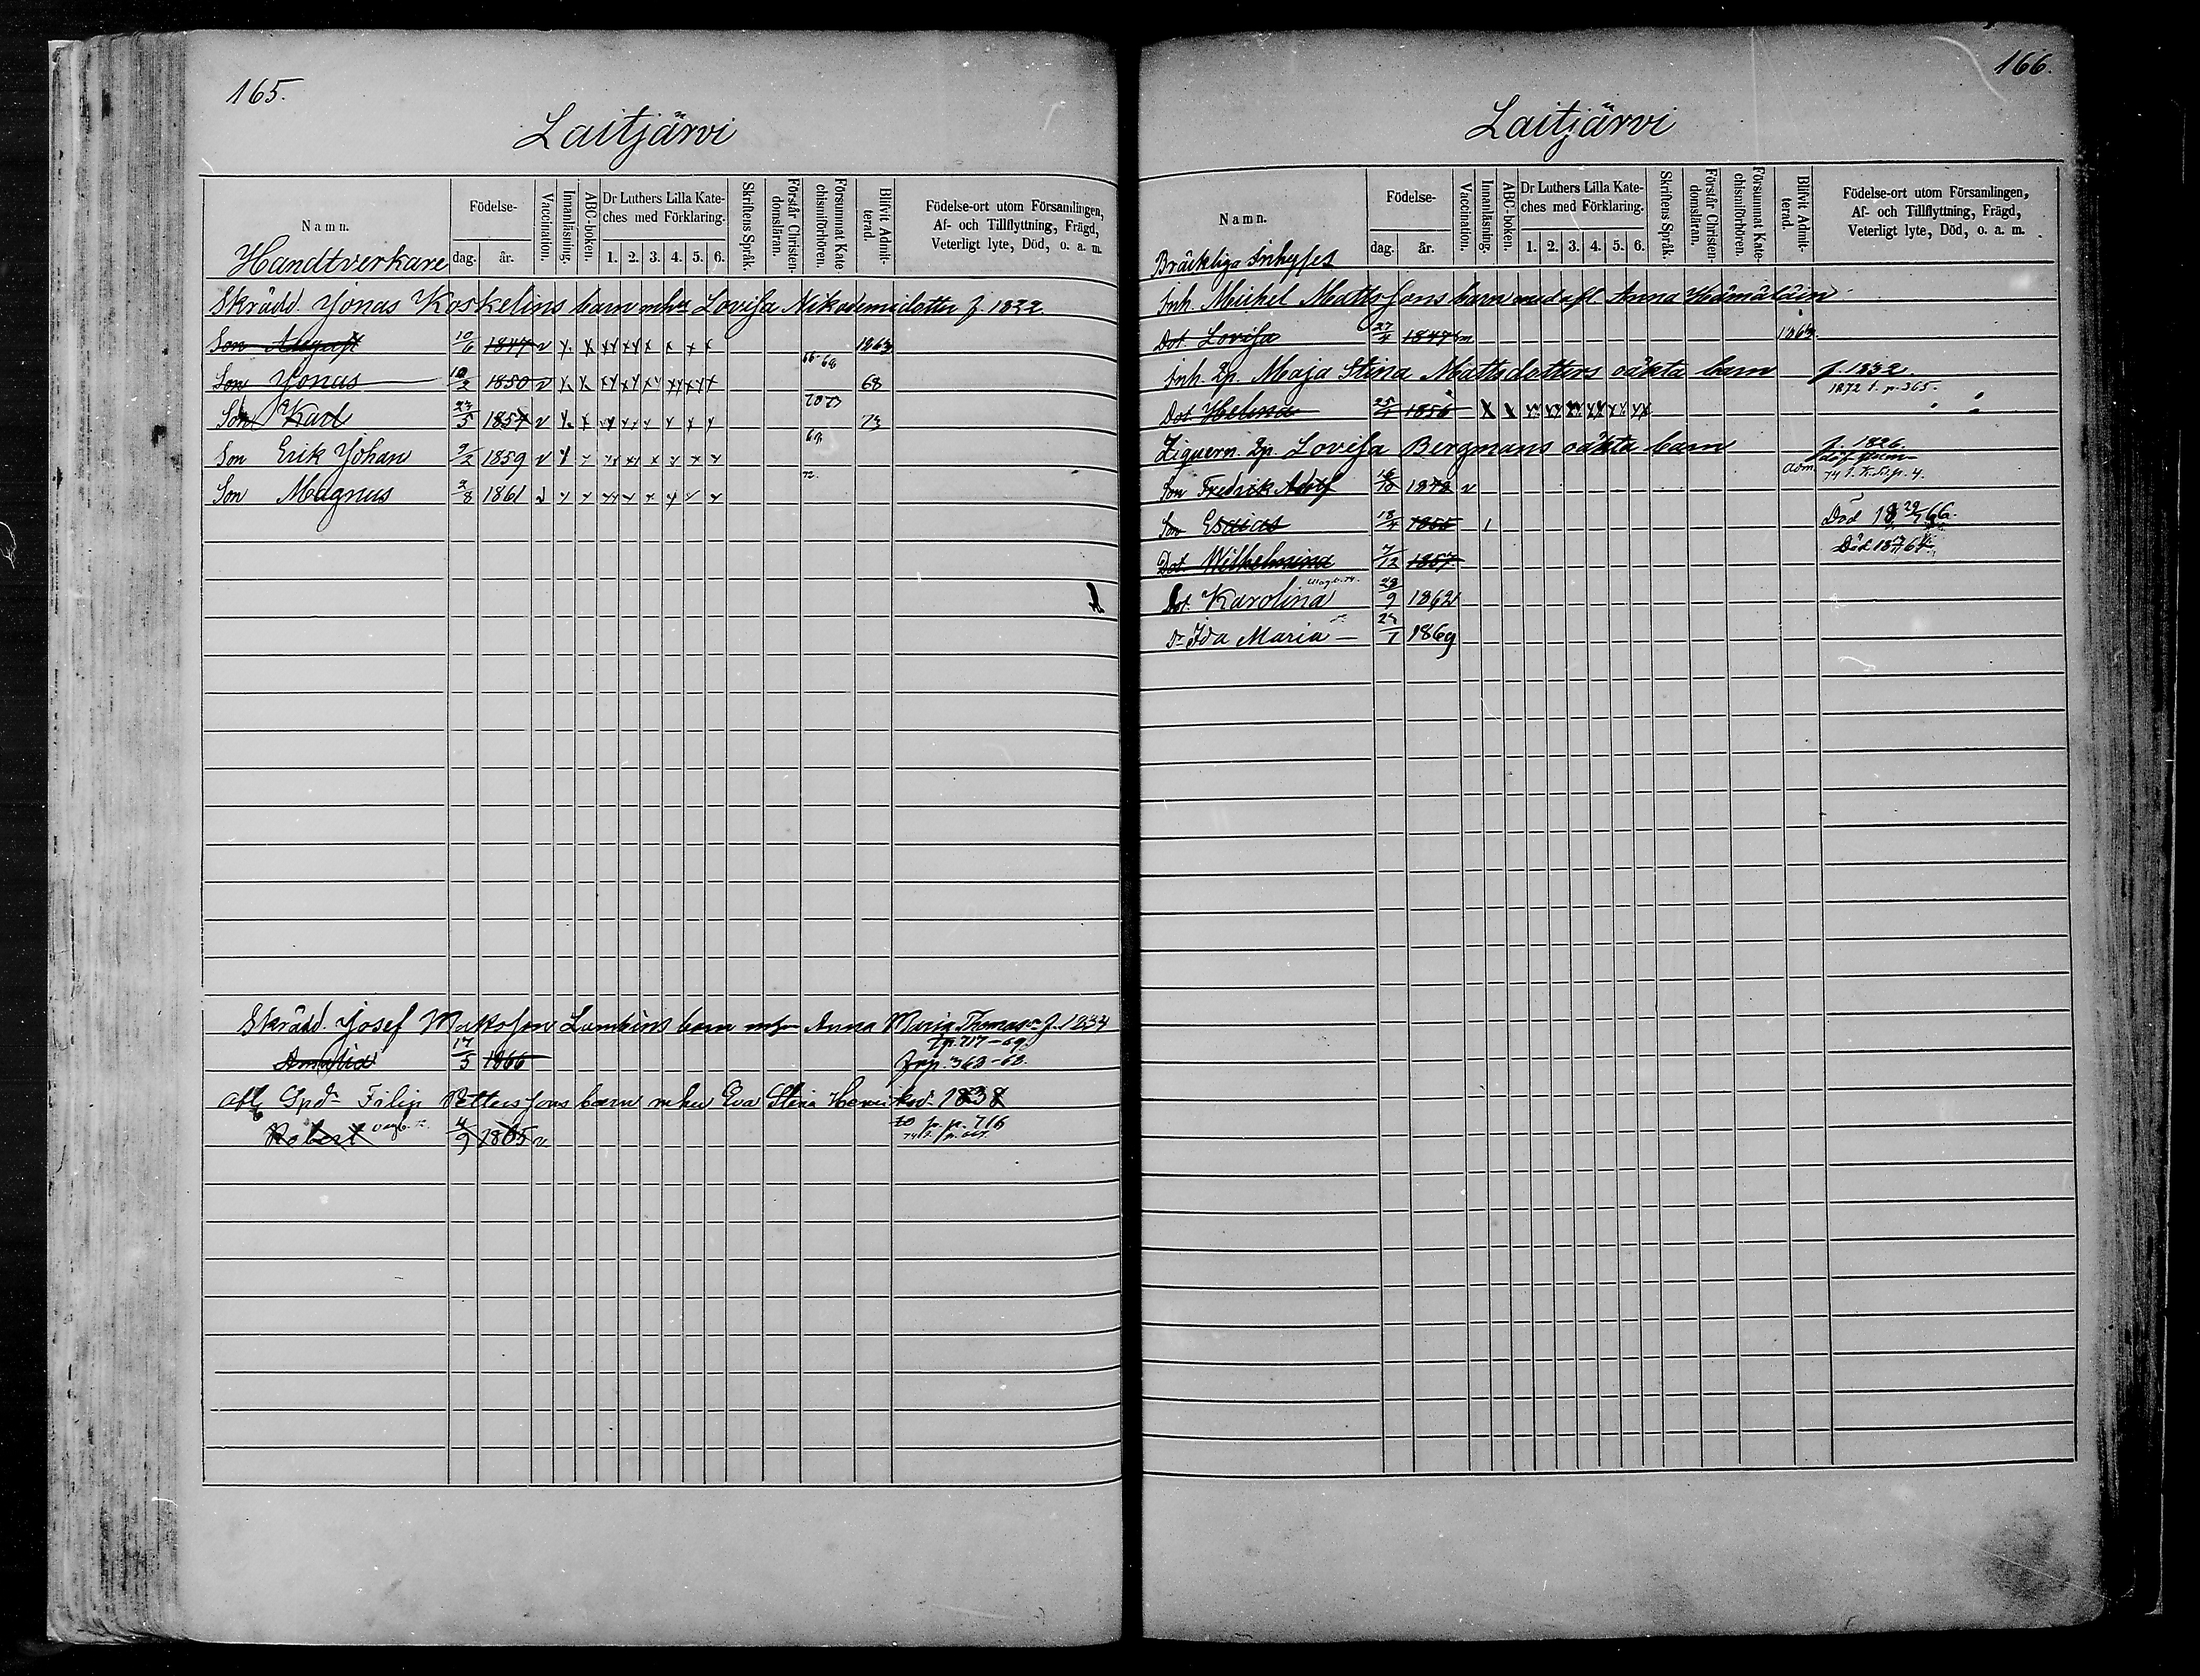 165.
Laitjärvi
Namn. Födelse- dag. år. Vaccination. Innanläsning. ABC-boken. Dr Luthers Lilla Kateches med Förklaring. 1. 2. 3. 4. 5. 6. Skriftens Språk. Förstår Christendomsläran. Försummat Katechismiförhören. Blifvit Admitterad. Födelse-ort utom Församlingen, Af- och Tillflyttning, Frägd, Veterligt lyte, Död, o. a. m.
Handtverkare
Skrädd. Jonas Koskelins barn mhu Lovisa Nikodemidotter f. 1832
Son August 10/6 1847 v x x xx xx x x x x 1863
Son Jonas 10/2 1850 v x x xx xx xx xx xx x 66-68 68
Son Karl 23/5 1857 v x x x x x x x x 70 73 73
Son Erik Johan 9/2 1859 v x x xx xx x x x x 69
Son Magnus 2/8 1861 v x x xx x x x x x 72.
Skrädd. Josef Mattsson Lambins barn mhu Anna Maria Thomasdr f. 1834
tp. 717-69.
Amalia 17/5 1866 frp. 368-68.
Spd. Filip Pettersons barn mhu Eva Stina Henriksd. 1838
to p. p. 716
Robert 4/9 1865 v
166.
Laitjärvi
Namn. Födelse- dag. år. Vaccination. Innanläsning. ABC-boken. Dr Luthers Lilla Kateches med Förklaring. 1. 2. 3. 4. 5. 6. Skriftens Språk. Förstår Christendomsläran. Försummat Katechismiförhören. Blifvit Admitterad. Födelse-ort utom Församlingen, Af- och Tillflyttning, Frägd, Veterligt lyte, Död, o. a. m.
Bräckliga Inhyses
Inh. Michel Mattssons barn med afl Anna Hämäläin
Dot. Lovisa 27/4 1847 1863
Inh. Qp. Maja Stina Mattsdotters oäkta barn f. 1832
1872 t. p. 365.
Dot. Helena 25/ 1856 x x xx xx xx xx xx xx
Ziguern. Qp. Lovisa Bergmans oäkta barn f. 1826.
Son Fredrik Adolf 16/10 1848 v adm. 74 t. K. k. p. 4.
Son Esaias 18/4 1855 1 Död 18 29/ 66.
Dot. Wilhelmina 7/12 1857 Död 1876
Dot. Karolina 28/9 1862
Dr Ida Maria 27/1 1869